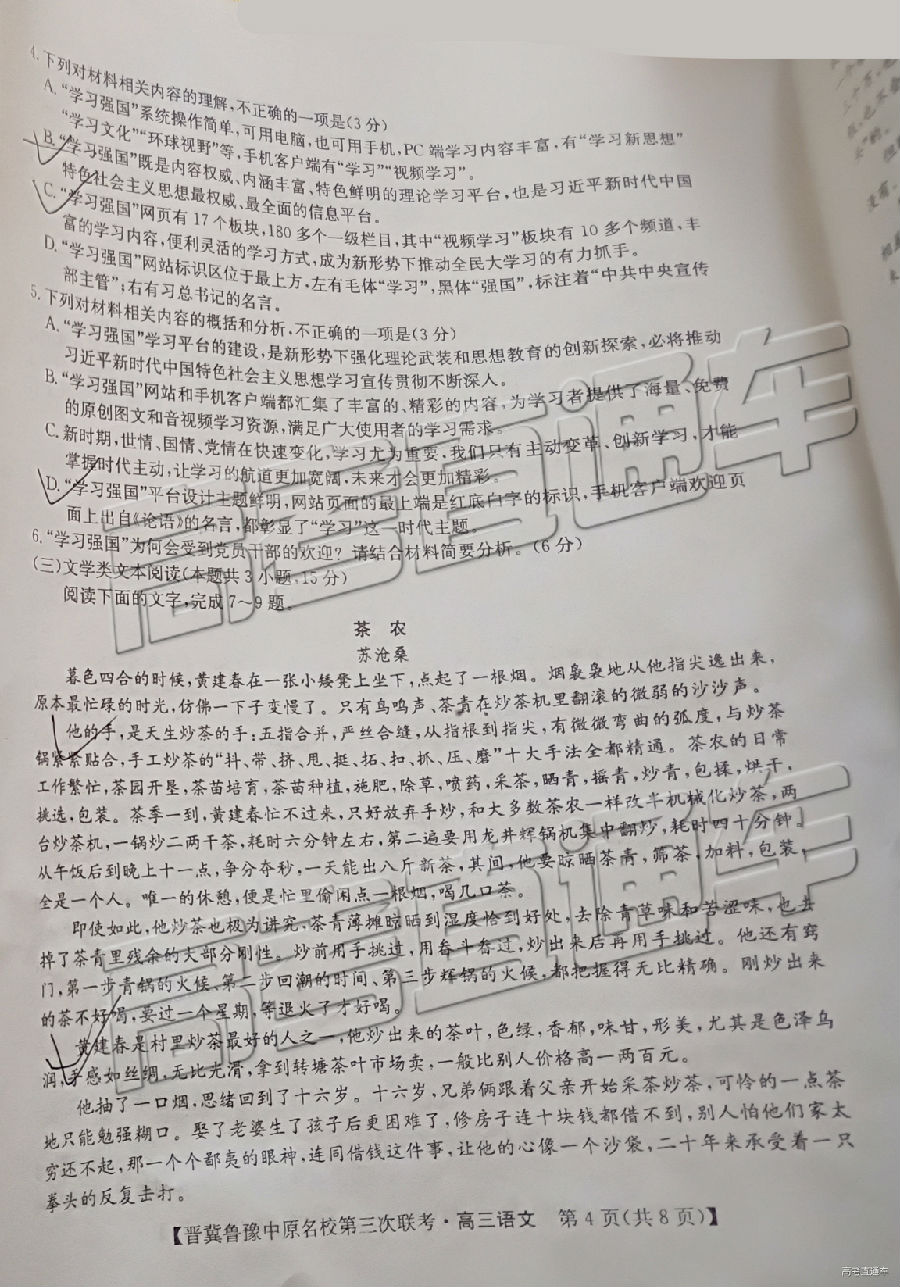 4.下列对材料相关内容的理解,不正确的一项是(3分)
A.“学习强国”系统操作简单,可用电脑,也可用手机,PC端学习内容丰富,有“学习新思想”
“学习文化”“环球视野”等,手机客户端有“学习”“视频学习”。
B.“学习强国”既是内容权威、内涵丰富、特色鲜明的理论学习平台,也是习近平新时代中国
特色社会主义思想最权威、最全面的信息平台。
C.“学习强国”网页有17个板块,180多个一级栏目,其中“视频学习”板块有10多个频道、丰
富的学习内容,便利灵活的学习方式,成为新形势下推动全民大学习的有力抓手。
D.“学习强国”网站标识区位于最上方,左有毛体“学习”,黑体“强国”,标注着“中共中央宣传
部主管”;右有习总书记的名言。
5.下列对材料相关内容的概括和分析,不正确的一项是(3分)
A.“学习强国”学习平台的建设,是新形势下强化理论武装和思想教育的创新探索,必将推动
习近平新时代中国特色社会主义思想学习宣传贯彻不断深入。
B.“学习强国”网站和手机客户端都汇集了丰富的、精彩的内容,为学习者提供了海量、免费
的原创图文和音视频学习资源,满足广大使用者的学习需求。
C.新时期,世情、国情、党情在快速变化,学习尤为重要,我们只有主动变革、创新学习,才能
掌握时代主动,让学习的航道更加宽阔,未来才会更加精彩。
D.“学习强国”平台设计主题鲜明,网站页面的最上端是红底白字的标识,手机客户端欢迎页
面上出自《论语》的名言,都彰显了“学习”这一时代主题。
6.“学习强国”为何会受到党员干部的欢迎?请结合材料简要分析。(6分)
(三)文学类文本阅读(本题共3小题,15分)
阅读下面的文字,完成7~9题。
茶农
苏沧桑
暮色四合的时候,黄建春在一张小矮凳上坐下,点起了一根烟。烟袅袅地从他指尖逸出来,
原本最忙碌的时光,仿佛一下子变慢了。只有鸟鸣声、茶青在炒茶机里翻滚的微弱的沙沙声。
他的手,是天生炒茶的手:五指合并,严丝合缝,从指根到指尖,有微微弯曲的弧度,与炒茶
锅紧紧贴合,手工炒茶的“抖、带、挤、甩、挺、拓、扣、抓、压、磨”十大手法全都精通。茶农的日常
工作繁忙,茶园开垦,茶苗培育,茶苗种植,施肥,除草,喷药,采茶,晒青,摇青,炒青,包揉,烘干,
挑选,包装。茶季一到,黄建春忙不过来,只好放弃手炒,和大多数茶农一样改半机械化炒茶,两
台炒茶机,一锅炒二两干茶,耗时六分钟左右,第二遍要用龙井辉锅机集中翻炒,耗时四十分钟。
从午饭后到晚上十一点,争分夺秒,一天能出八斤新茶,其间,他要晾晒茶青,筛茶,加料,包装,
全是一个人。唯一的休憩,便是忙里偷闲点一根烟,喝几口茶。
即使如此,他炒茶也极为讲究,茶青薄摊晾晒到湿度恰到好处,去除青草味和苦涩味,也去
掉了茶青里残余的大部分刚性。炒前用手挑过,用畚斗畚过,炒出来后再用手挑过。他还有窍
门,第一步青锅的火候、第二步回潮的时间、第三步辉锅的火候,都把握得无比精确。刚炒出来
的茶不好喝,要过一个星期,等退火了才好喝。
黄建春是村里炒茶最好的人之一,他炒出来的茶叶,色绿,香郁,味甘,形美,尤其是色泽乌
润,手感如丝绸,无比光滑,拿到转塘茶叶市场卖,一般比别人价格高一两百元。
他抽了一口烟,思绪回到了十六岁。十六岁,兄弟俩跟着父亲开始采茶炒茶,可怜的一点茶
地只能勉强糊口。娶了老婆生了孩子后更困难了,修房子连十块钱都借不到,别人怕他们家太
穷还不起,那一个个鄙夷的眼神,连同借钱这件事,让他的心像一个沙袋,二十年来承受着一只
拳头的反复击打。
【晋冀鲁豫中原名校第三次联考·高三语文 第4页(共8页)】
高考直通车
高考直通车
高考直通车